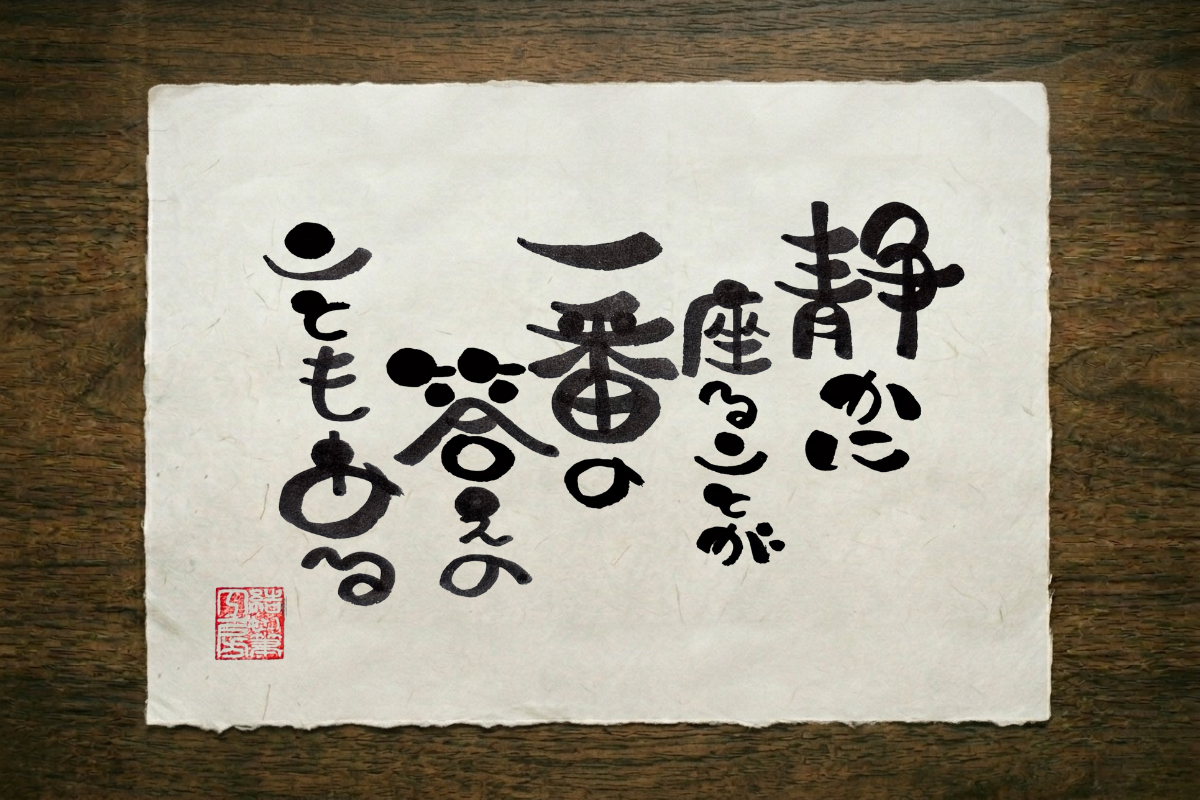 静かに
座ることが
一番の
答えの
こともある